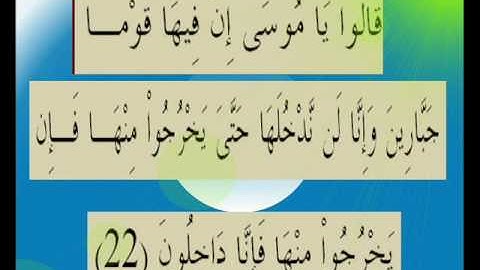 قَالُوا يَا مُوسَى إِن فِيهَا قَوْمــا
جَبَّارِينَ وَإِنَّا لَن نَّدْخُلَهَا حَتَّىَ يَخْرُجُواْ مِنْهَــا فَــإِن
يَخْرُجُواْ مِنْهَا فَإِنَّا دَاخِلُونَ (22)